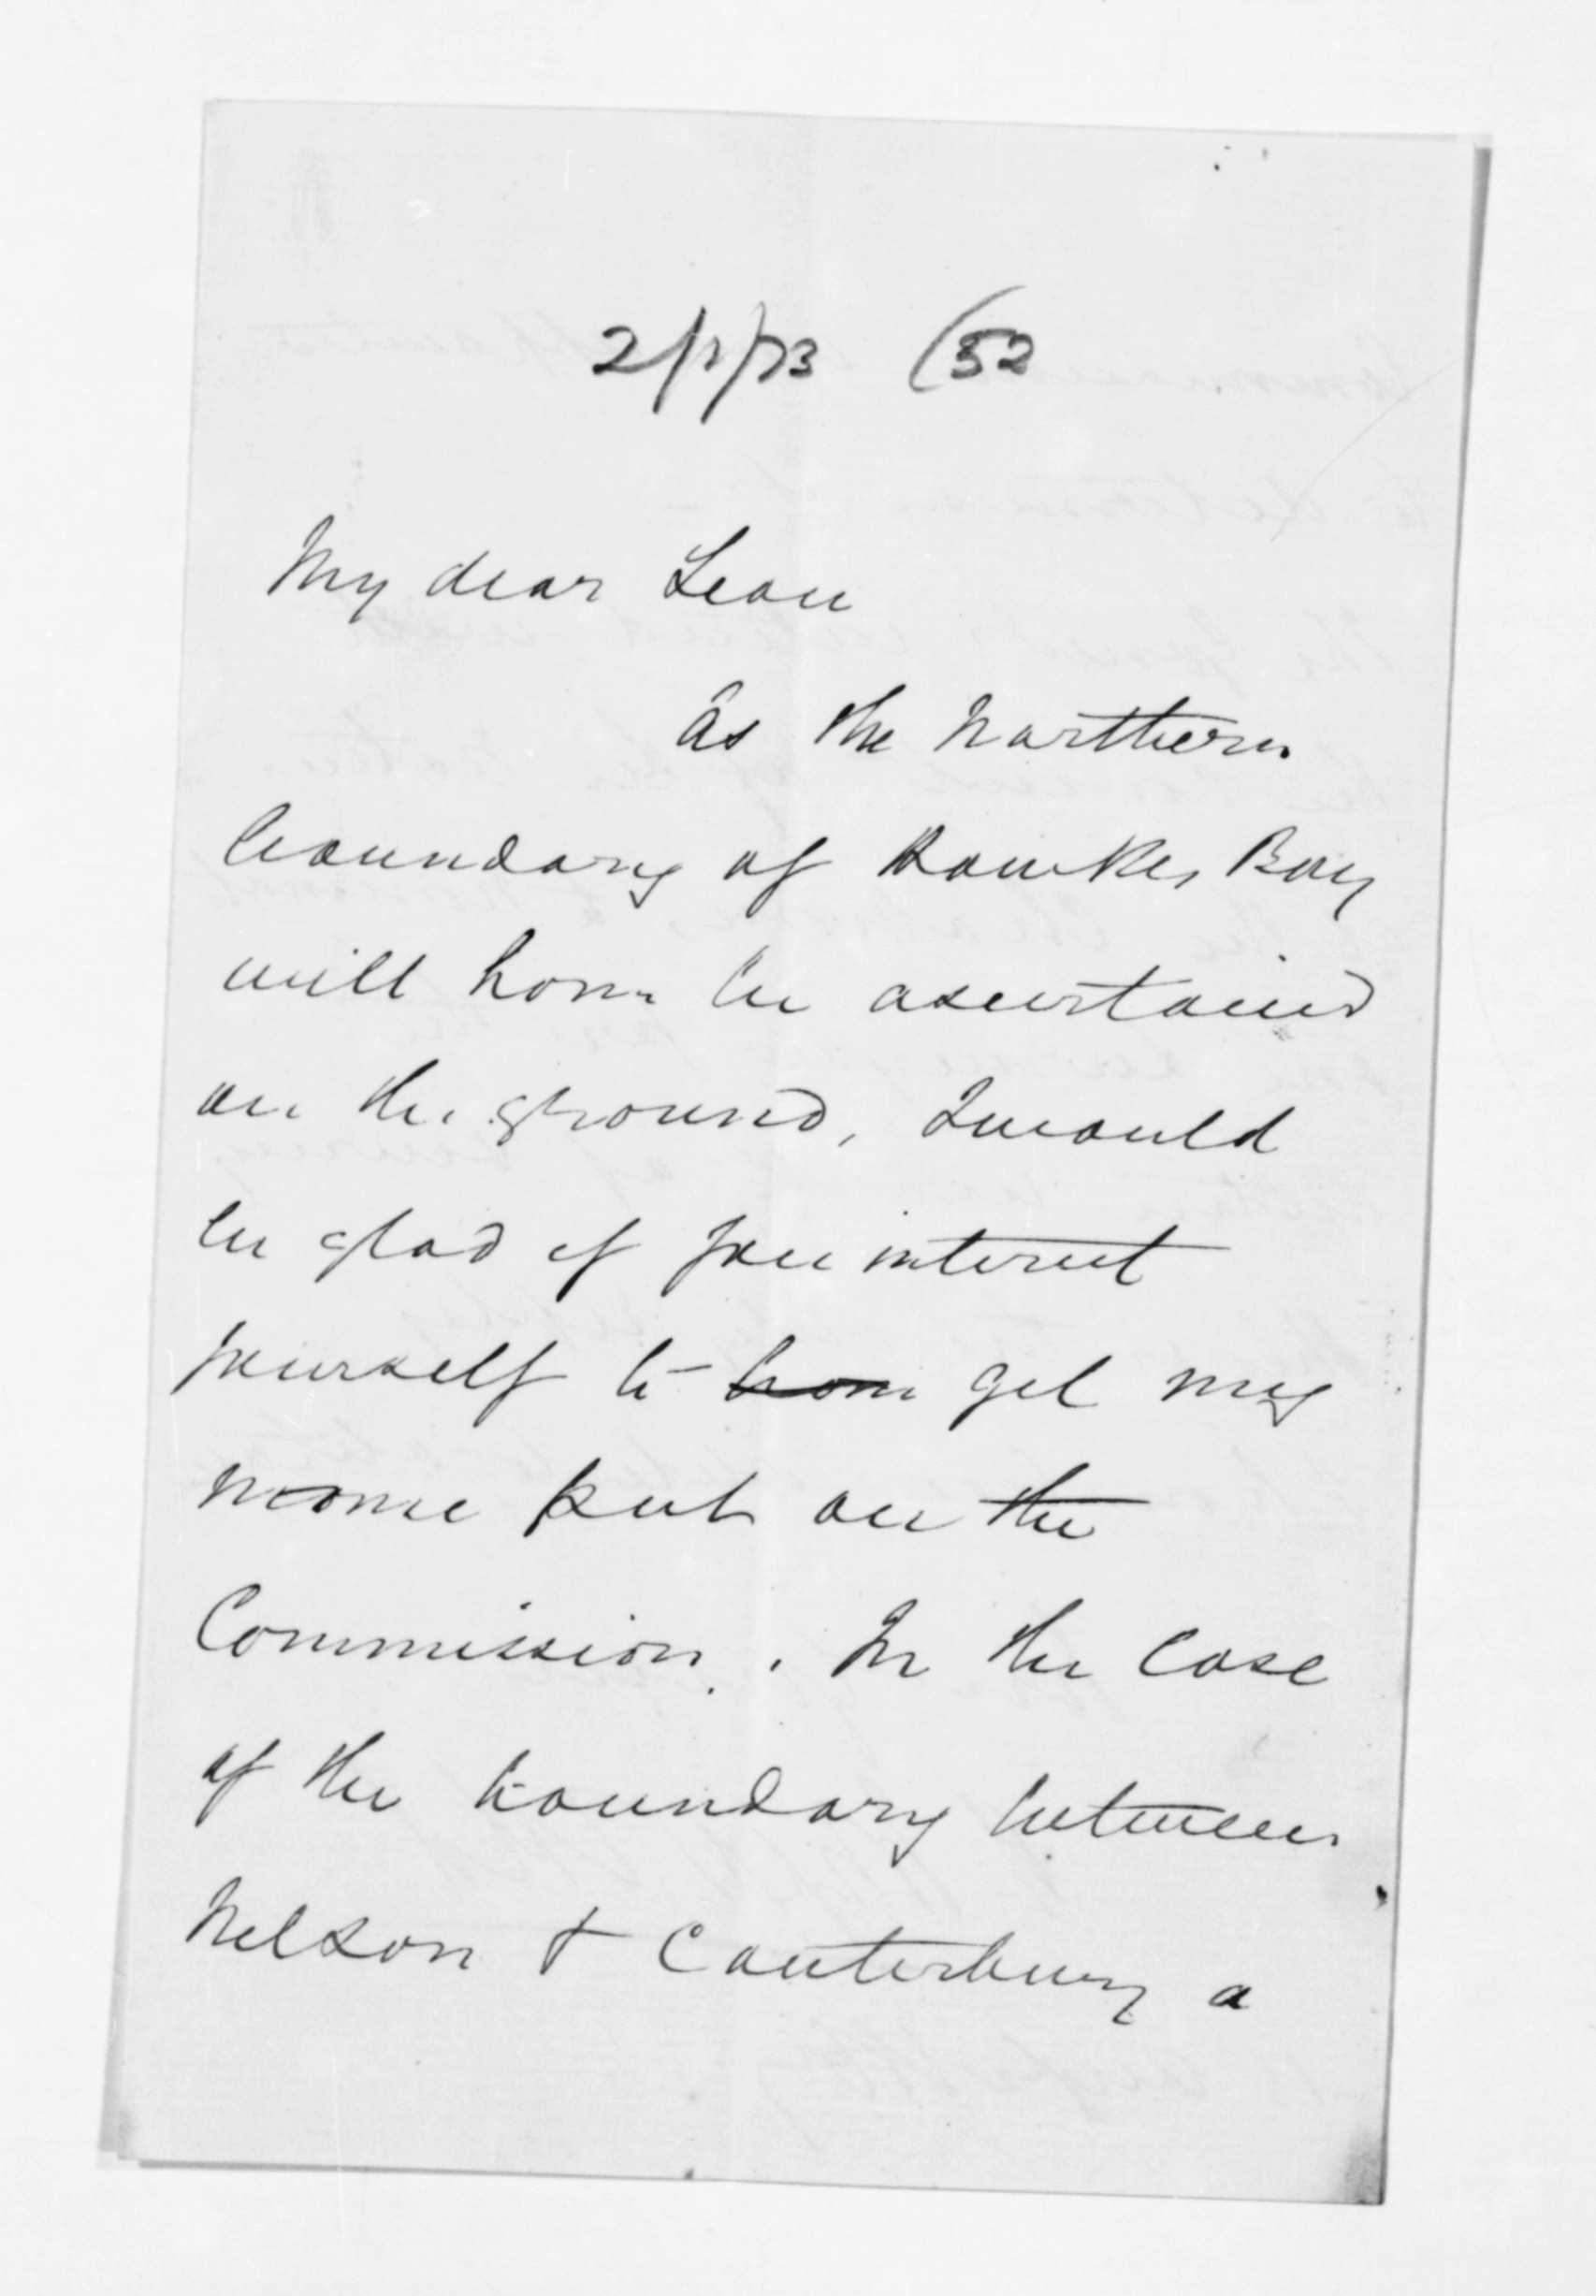 2/1/73 (52
My dear Lean
As the Northern
boundary of Hawkes Bay
will have to be ascertained
on the ground, I would
be glad if you interest
yourself to have get my
name put on the
Commission. In the case
of the boundary between
Nelson & Canterbury a